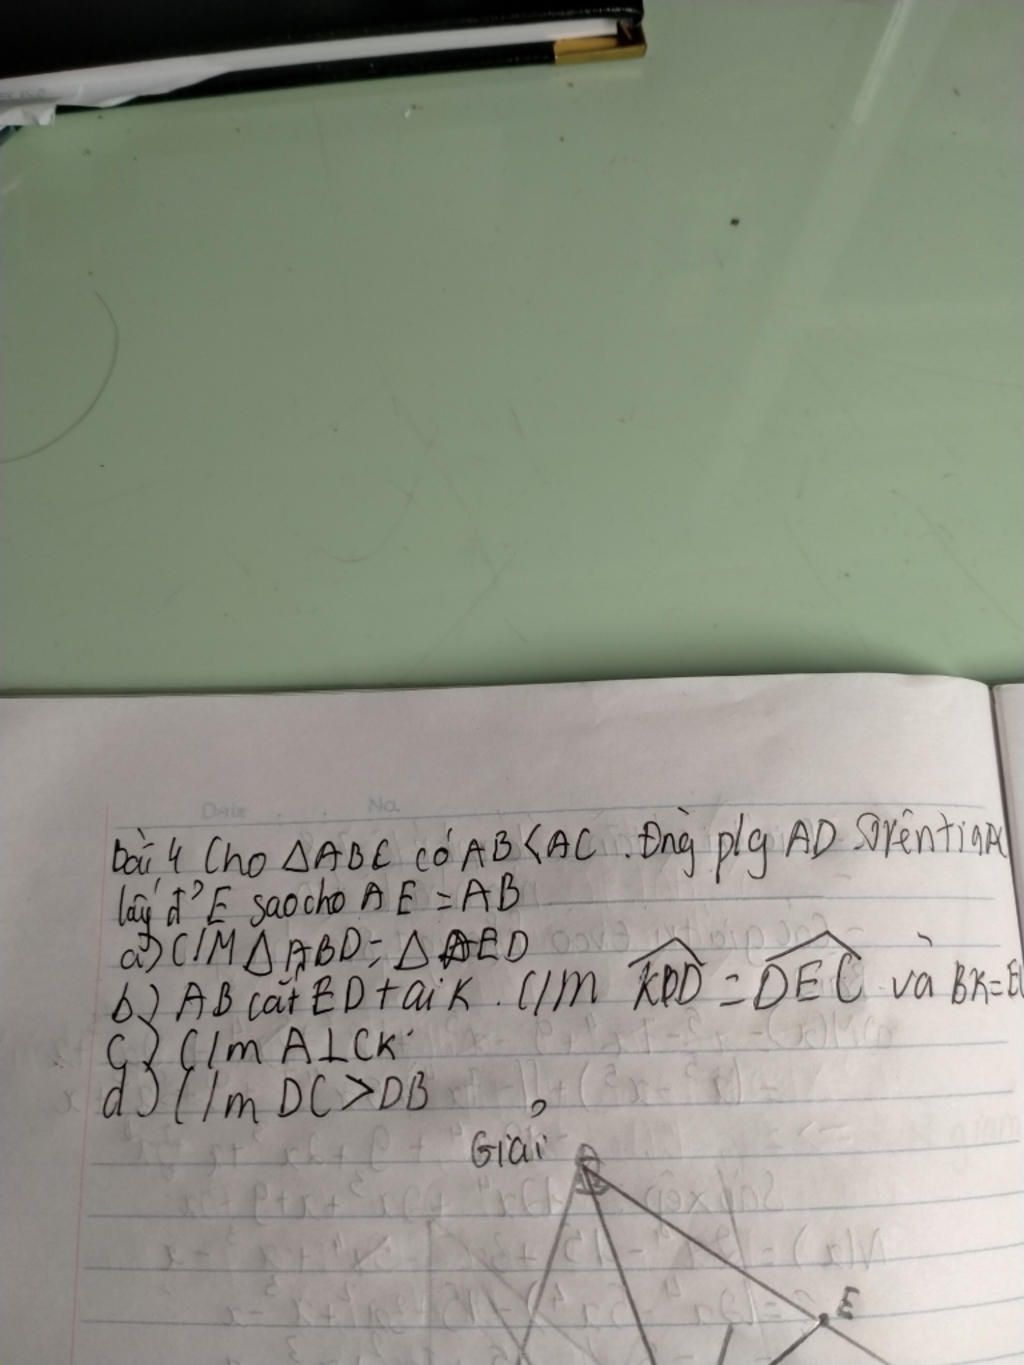 Date No.
bài 4 Cho △ABC có AB<AC . Đng p/g AD trên tia AC
lấy đ' E sao cho AE = AB
a) C/M △ABD = △AED
b) AB cắt ED tại K . C/m KBD = DEC và BK=E
c) C/m A⊥CK
d) C/m DC>DB
Giải
A
E